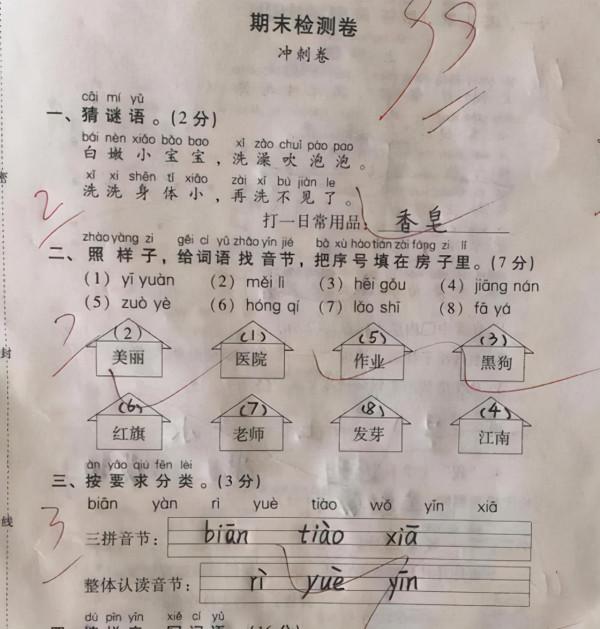 期末检测卷
98
冲刺卷
cāi mí yǔ
一、猜谜语。(2分)
bái nèn xiǎo bǎo bao xǐ zǎo chuī pào pao
白嫩小宝宝，洗澡吹泡泡。
xǐ xi shēn tǐ xiǎo zài xǐ bù jiàn le
洗洗身体小，再洗不见了。
2
打一日常用品：香皂
zhào yàng zi gěi cí yǔ zhǎo yīn jié bǎ xù hào tián zài fáng zi lǐ
二、照样子，给词语找音节，把序号填在房子里。(7分)
(1) yī yuàn (2) měi lì (3) hēi gǒu (4) jiāng nán
(5) zuò yè (6) hóng qí (7) lǎo shī (8) fā yá
7
(2) (1) (5) (3)
美丽 医院 作业 黑狗
(6) (7) (8) (4)
红旗 老师 发芽 江南
àn yāo qiú fēn lèi
三、按要求分类。(3分)
biān yàn rì yuè tiào wǒ yīn xiā
3
三拼音节： biān tiào xiā
整体认读音节： rì yuè yīn
dú pīn yīn xiě cí yǔ
密
封
线